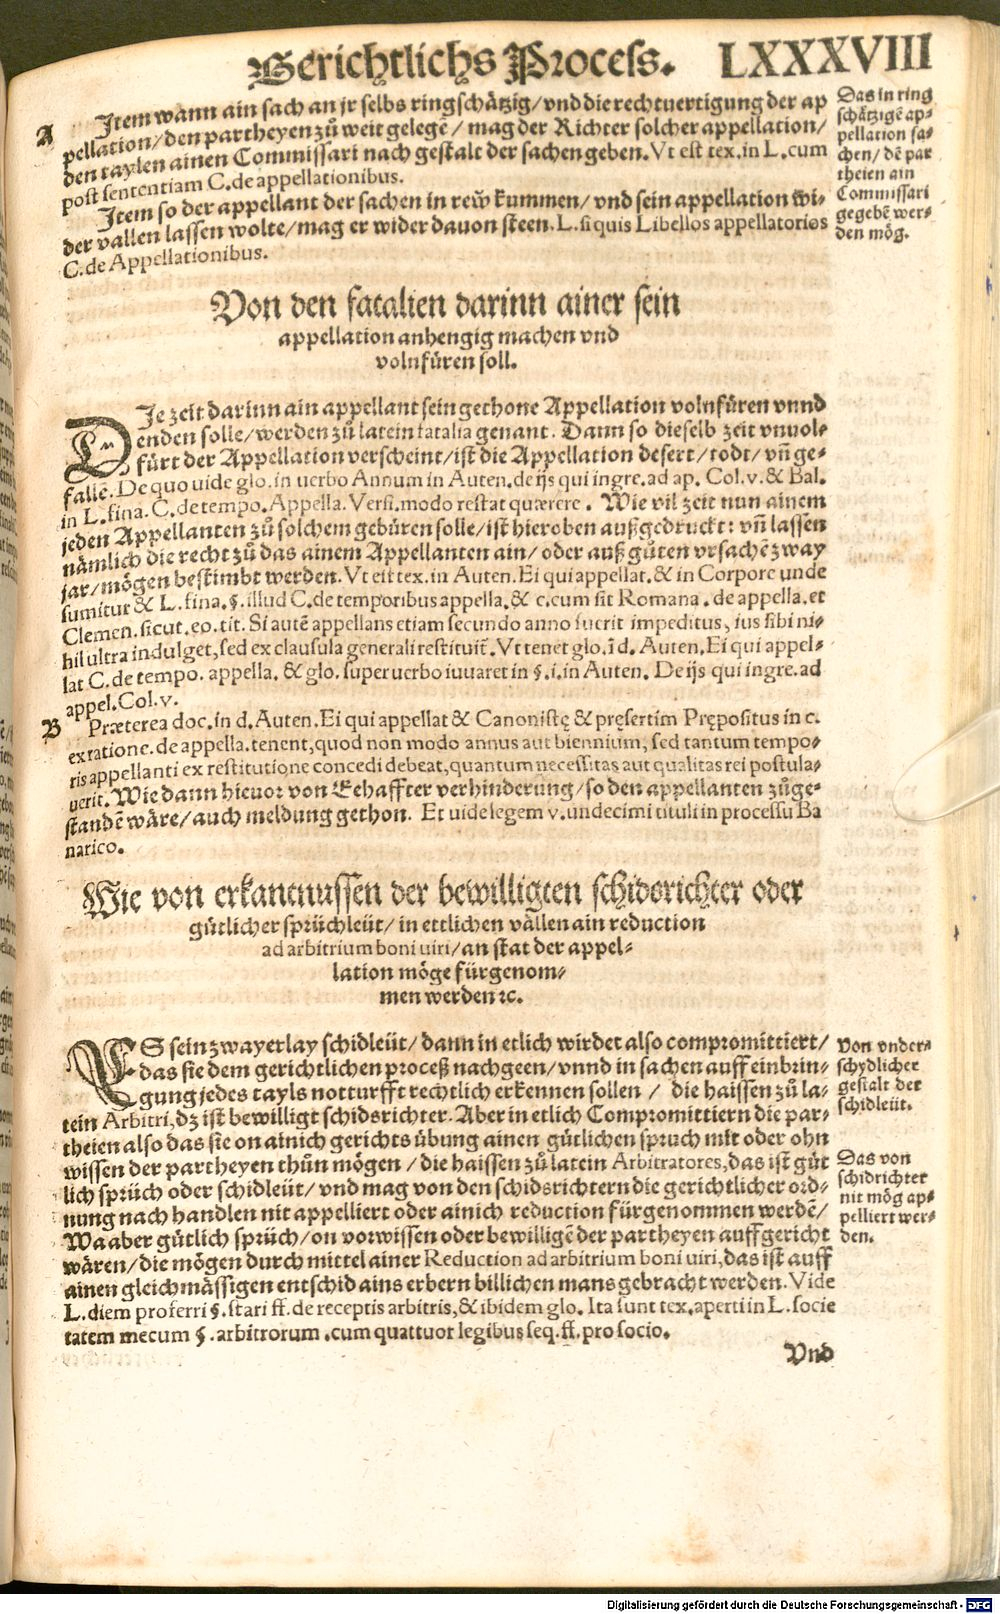 Gerichtlichs Process. LXXXVIII
A
Item wann ain sach an jr selbs ringschätzig/ vnd die rechtuertigung der ap
pellation/ den partheyen zů weit gelegē/ mag der Richter solcher appellation/
den taylen ainen Commissari nach gestalt der sachen geben. Vt est tex. in L. cum
post sententiam C. de appellationibus.
Item so der appellant der sachen in rew kummen/ vnd sein appellation wi-
der vallen lassen wolte/ mag er wider dauon steen. L. si quis Libellos appellatorios
C. de Appellationibus.
Das in ring
schätzigē ap-
pellation sa-
chen/ dē par
theien ain
Commissari
gegebē wer-
den mög.
Von den fatalien darinn ainer sein
appellation anhengig machen vnd
volnfüren soll.
Die zeit darinn ain appellant sein gethone Appellation volnfüren vnnd
enden solle/ werden zů latein fatalia genant. Dann so dieselb zeit vnuol-
fürt der Appellation verscheint/ ist die Appellation desert/ todt/ vn̄ ge-
falle. De quo uide glo. in uerbo Annum in Auten. de ijs qui ingre. ad ap. Col. v. & Bal.
in L. fina. C. de tempo. Appella. Versi. modo restat quærere. Wie vil zeit nun ainem
jeden Appellanten zů solchem gebüren solle/ ist hieroben außgedruckt: vn̄ lassen
nämlich die recht zů das ainem Appellanten ain/ oder auß gůten vrsachē zway
jar/ mögen bestimbt werden. Vt est tex. in Auten. Ei qui appellat. & in Corpore unde
sumitur & L. fina. §. illud C. de temporibus appella. & c. cum sit Romana. de appella. et
Clemen. sicut. eo. tit. Si autē appellans etiam secundo anno fuerit impeditus, ius sibi ni-
hil ultra indulget, sed ex clausula generali restituit̄. Vt tenet glo. ī d. Auten. Ei qui appel-
lat C. de tempo. appella. & glo. super uerbo iuuaret in §. i. in Auten. De ijs qui ingre. ad
appel. Col. v.
B
Præterea doc. in d. Auten. Ei qui appellat & Canonistę & pręsertim Prępositus in c.
ex ratione. de appella. tenent, quod non modo annus aut biennium, sed tantum tempo-
ris appellanti ex restitutione concedi debeat, quantum necessitas aut qualitas rei postula-
uerit. Wie dann hieuor von Eehaffter verhinderung/ so den appellanten zůge-
standē wäre/ auch meldung gethon. Et uide legem v. undecimi tituli in processu Ba
narico.
Wie von erkantnussen der bewilligten schidsrichter oder
gütlicher sprüchleüt/ in ettlichen vällen ain reduction
ad arbitrium boni uiri/ an stat der appel-
lation möge fürgenom-
men werden ꝛc.
ES sein zwayerlay schidleüt/ dann in etlich wirdet also compromittiert/
das sie dem gerichtlichen proceß nachgeen/ vnnd in sachen auff einbrin-
gung jedes tayls notturfft rechtlich erkennen sollen/ die haissen zů la-
tein Arbitri, dz ist bewilligt schidsrichter. Aber in etlich Compromittiern die par-
theien also das sie on ainich gerichts übung ainen gütlichen spruch mit oder ohn
wissen der partheyen thůn mögen/ die haissen zů latein Arbitratores, das ist güt
lich sprüch oder schidleüt/ vnd mag von den schidsrichtern die gerichtlicher ord-
nung nach handlen nit appelliert oder ainich reduction fürgenommen werdē/
Wa aber gütlich sprüch/ on vorwissen oder bewilligē der partheyen auffgericht
wären/ die mögen durch mittel ainer Reduction ad arbitrium boni uiri, das ist auff
ainen gleichmässigen entschid ains erbern billichen mans gebracht werden. Vide
L. diem proferri §. stari ff. de receptis arbitris, & ibidem glo. Ita sunt tex. aperti in L. socie
tatem mecum §. arbitrorum. cum quattuor legibus seq. ff. pro socio.
Von vnder-
schydlicher
gestalt der
schidleüt.
Das von
schidrichter
nit mög ap-
pelliert wer-
den.
Vnd
Digitalisierung gefördert durch die Deutsche Forschungsgemeinschaft - DFG